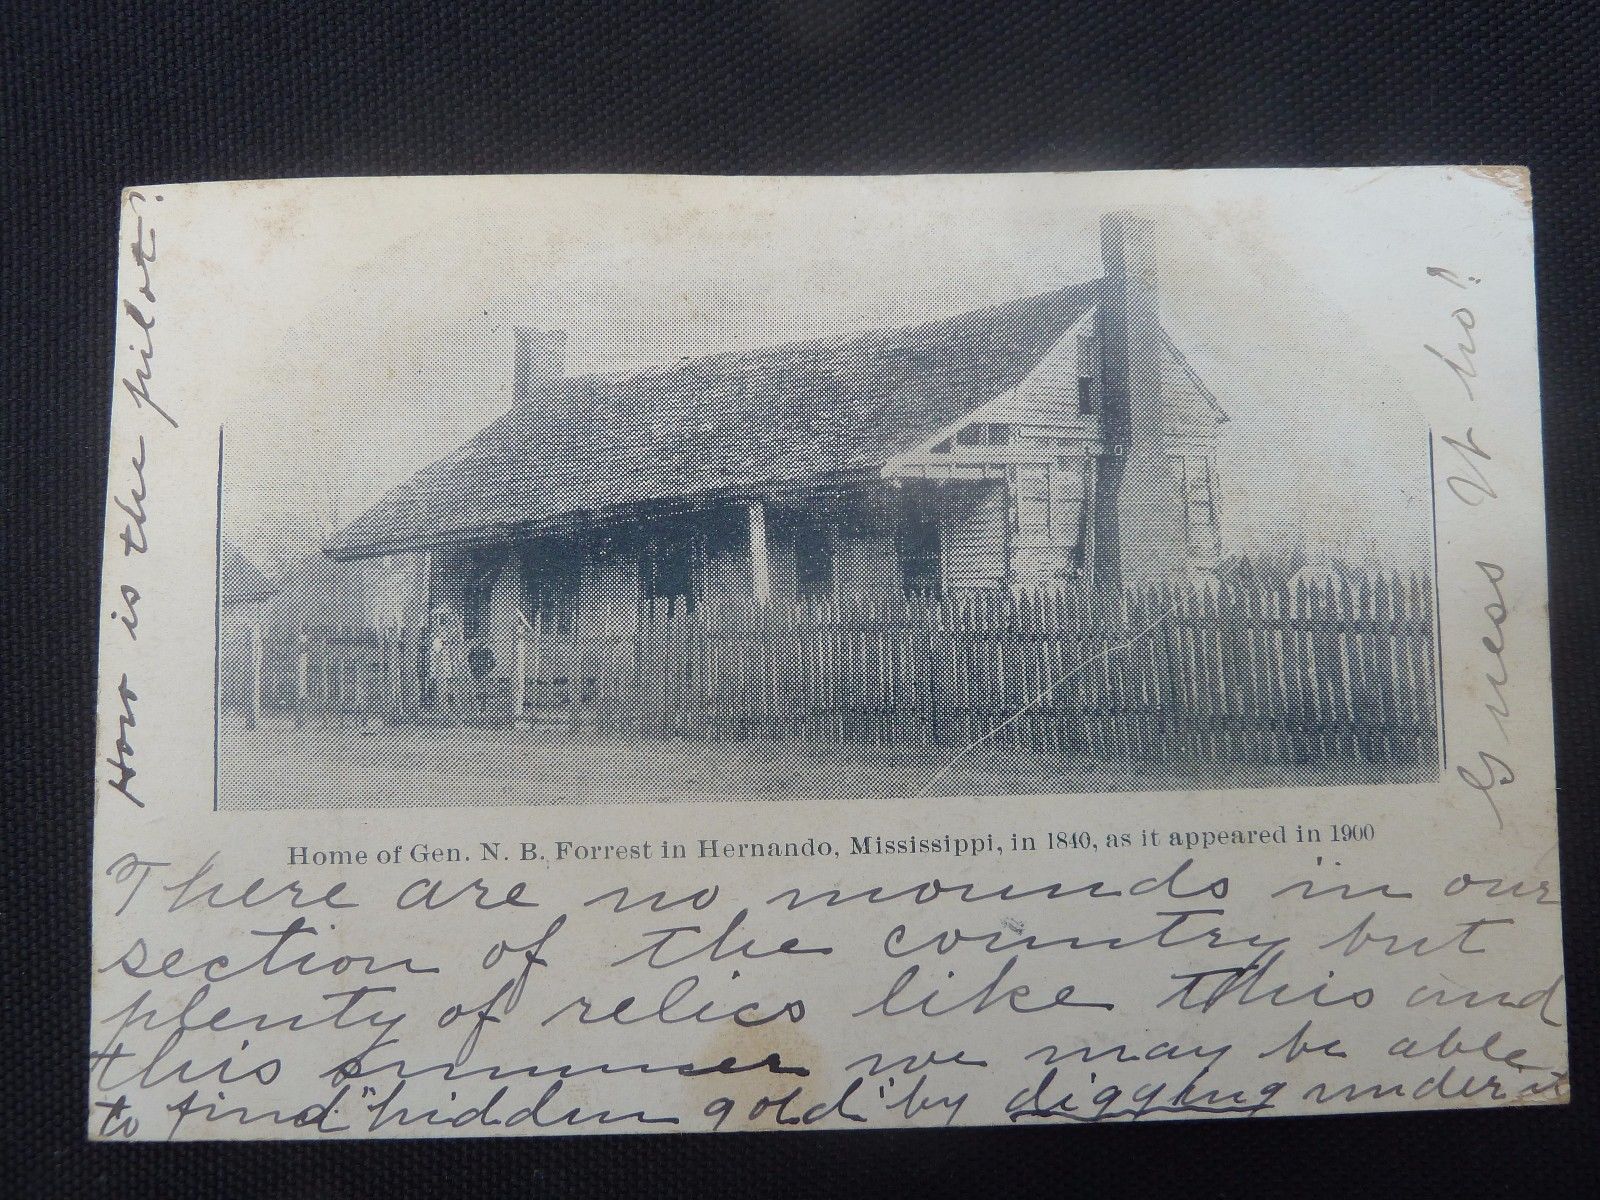 How is the pilot?
Guess Who!
Home of Gen. N. B. Forrest in Hernando, Mississippi, in 1840, as it appeared in 1900
There are no mounds in our
section of the country but
plenty of relics like this and
this summer we may be able
to find "hidden gold" by digging under it